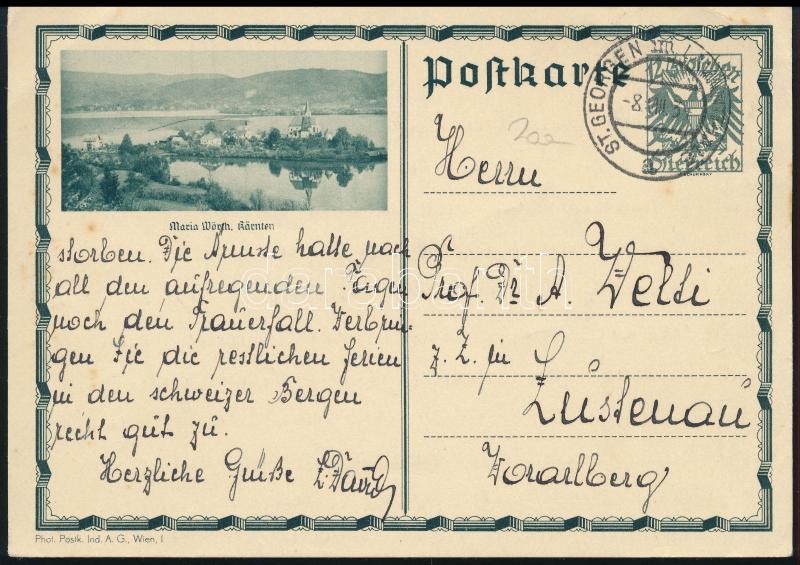 Postkarte
ST. GEORGEN im
-8.
12 Groschen
Österreich
Maria Wörth, Kärnten
storben. Die Ärmste hatte nach
all den aufregenden Tagen
noch den Trauerfall. Verbrin-
gen Sie die restlichen Ferien
in den schweizer Bergen
recht gut zu.
Herzliche Grüße L. David
Herrn
Prof. Dr A.
z. Z. in
Lustenau
Vorarlberg
Phot. Postk. Ind. A. G., Wien, I
darabanth